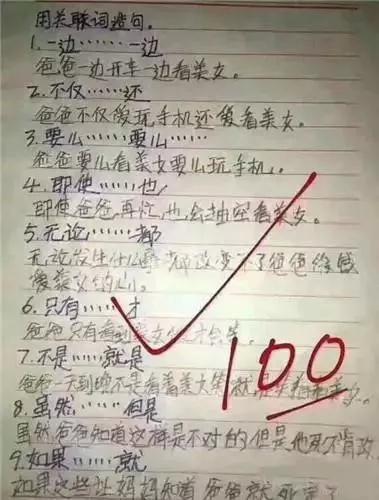 用关联词造句。
1.一边……一边
爸爸一边开车一边看美女。
2.不仅……还
爸爸不仅爱玩手机还爱看美女。
3.要么……要么……
爸爸要么看美女要么玩手机。
4.即使……也
即使爸爸,再忙,也会抽空看美女。
5.无论……都
无论发生什么 都改变不了爸爸
爱美女的心。
6.只有……才
爸爸只有看到美女 才会笑。
7.不是……就是
爸爸一天到晚不是看着美女笑就是
8.虽然……但是
虽然爸爸知道这样是不对的但是他死不肯改
9.如果……就
如果这些让妈妈知道 爸爸就死定了
100